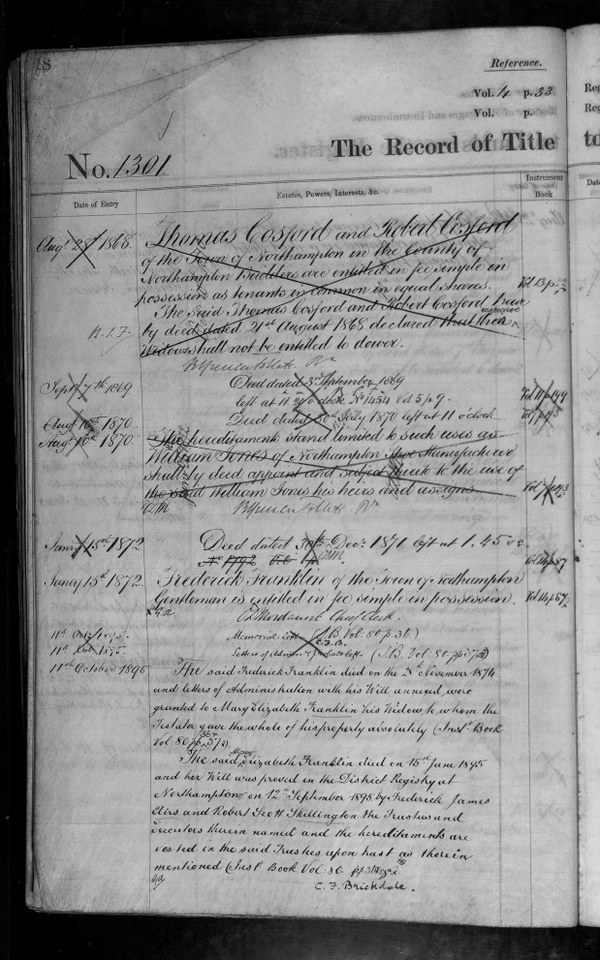 18
Reference.
Vol. 4 p. 33
Vol. p.
The Record of Title
to
No. 1301
Date of Entry
Estates, Powers, Interests, &c.
Instrument Book
Date
Augt 28th 1868
Thomas Cosford and Robert Cosford
of the Town of Northampton in the County of
Northampton Builders are entitled in fee simple in
possession as tenants in common in equal shares.
Vol 13 p
The said Thomas Cosford and Robert Cosford have
by deed dated 21st August 1868 declared that their respective
Widows shall not be entitled to dower.
Sept 7th 1869
Deed dated 3rd September 1869
left at 11 o'clock No 1454 Vol 5 p 9.
Augt 16th 1870
Deed dated 30th July 1870 left at 11 o'clock
Augt 16th 1870.
The hereditaments stand limited to such uses as
William Jones of Northampton Shoe Manufacturer
shall by deed appoint and subject thereto to the use of
the said William Jones his heirs and assigns
Jany 15th 1872
Deed dated 30th Decr 1871 left at 1.45 oc
No 1792
Jany 15th 1872
Frederick Franklin of the Town of Northampton
Gentleman is entitled in fee simple in possession.
Vol 14 p 57
Chief Clerk
11th Oct 1895.
Memorial (I.B. Vol. 80 p. 36)
C.F.B.
11th Oct 1895
Letters of Admon left (I.B. Vol: 80
11th October 1895
The said Frederick Franklin died on the November 1874
and letters of Administration with his Will annexed were
granted to Mary Elizabeth Franklin his Widow to whom the
Testator gave the whole of his property absolutely (Inst. Book
Vol 80
The said Mary Elizabeth Franklin died on 15th June 1895
and her Will was proved in the District Registry at
Northampton on 12th September 1895 by Frederick James
and Robert Scott Skillington the Trustees and
Executors therein named and the hereditaments are
vested in the said Trustees upon trust as therein
mentioned (Inst. Book Vol: 80.
C. F. Brickdale.